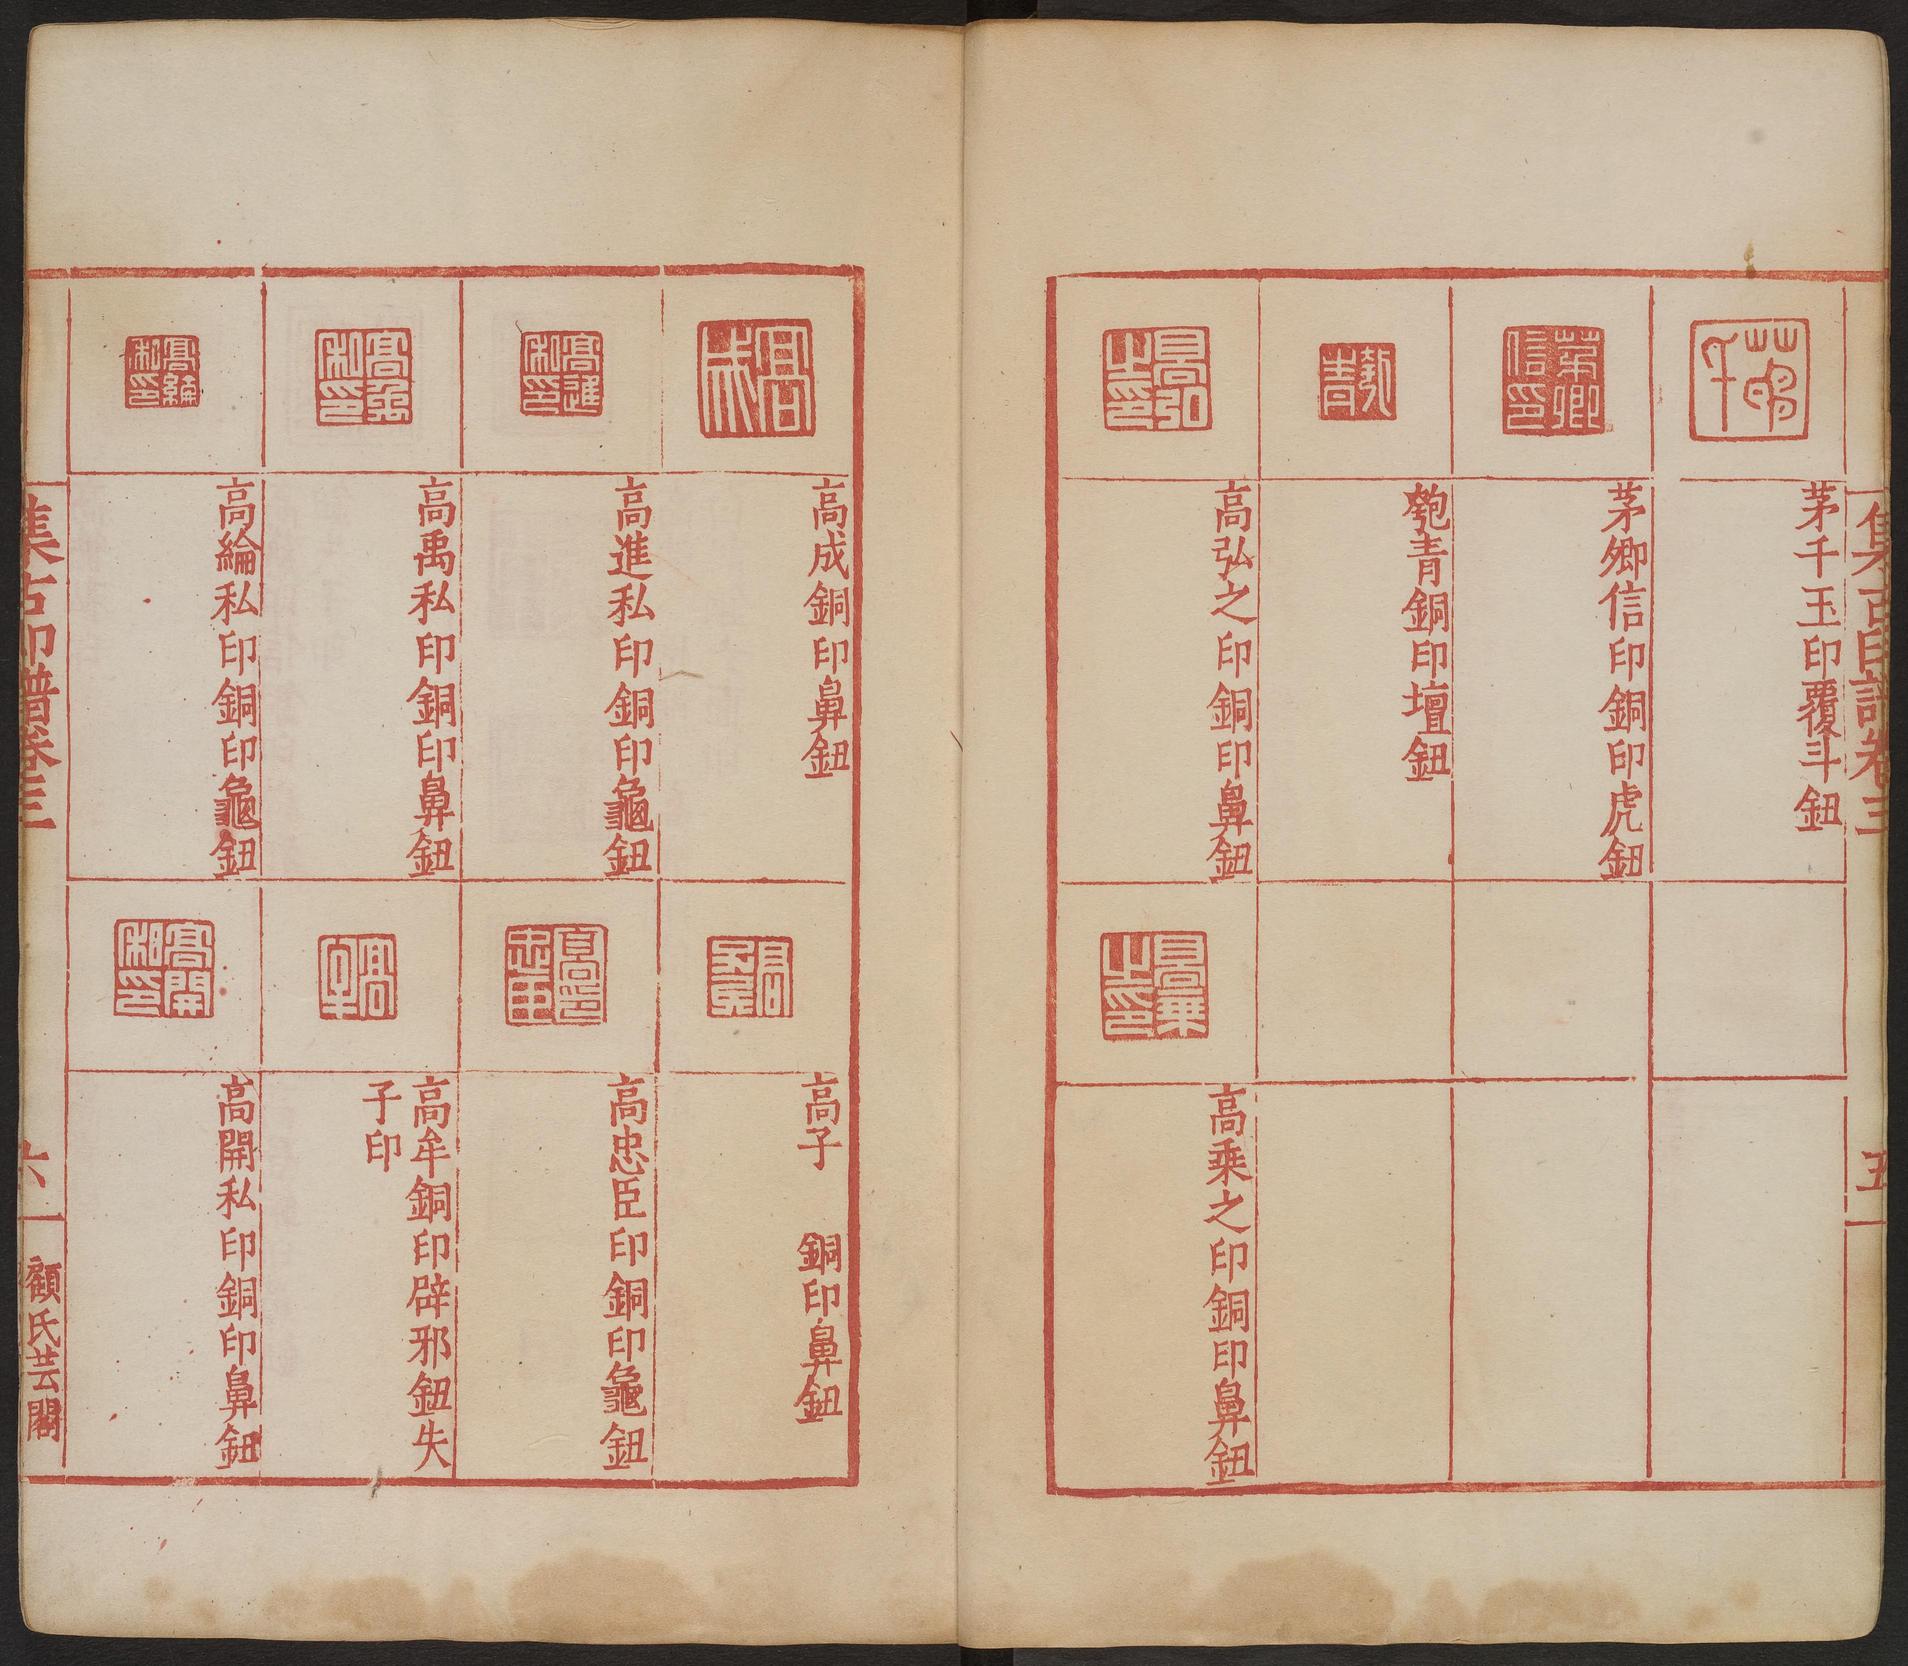 集古印譜卷三
五
茅千玉印覆斗鈕
茅卿信印銅印虎鈕
青銅印壇鈕
高弘之印銅印鼻鈕
高乘之印銅印鼻鈕
高成銅印鼻鈕
高進私印銅印龜鈕
高禹私印銅印鼻鈕
高綸私印銅印龜鈕
高子 銅印鼻鈕
高忠臣印銅印龜鈕
高牟銅印辟邪鈕失
子印
高開私印銅印鼻鈕
集古印譜卷三
六
顧氏芸閣